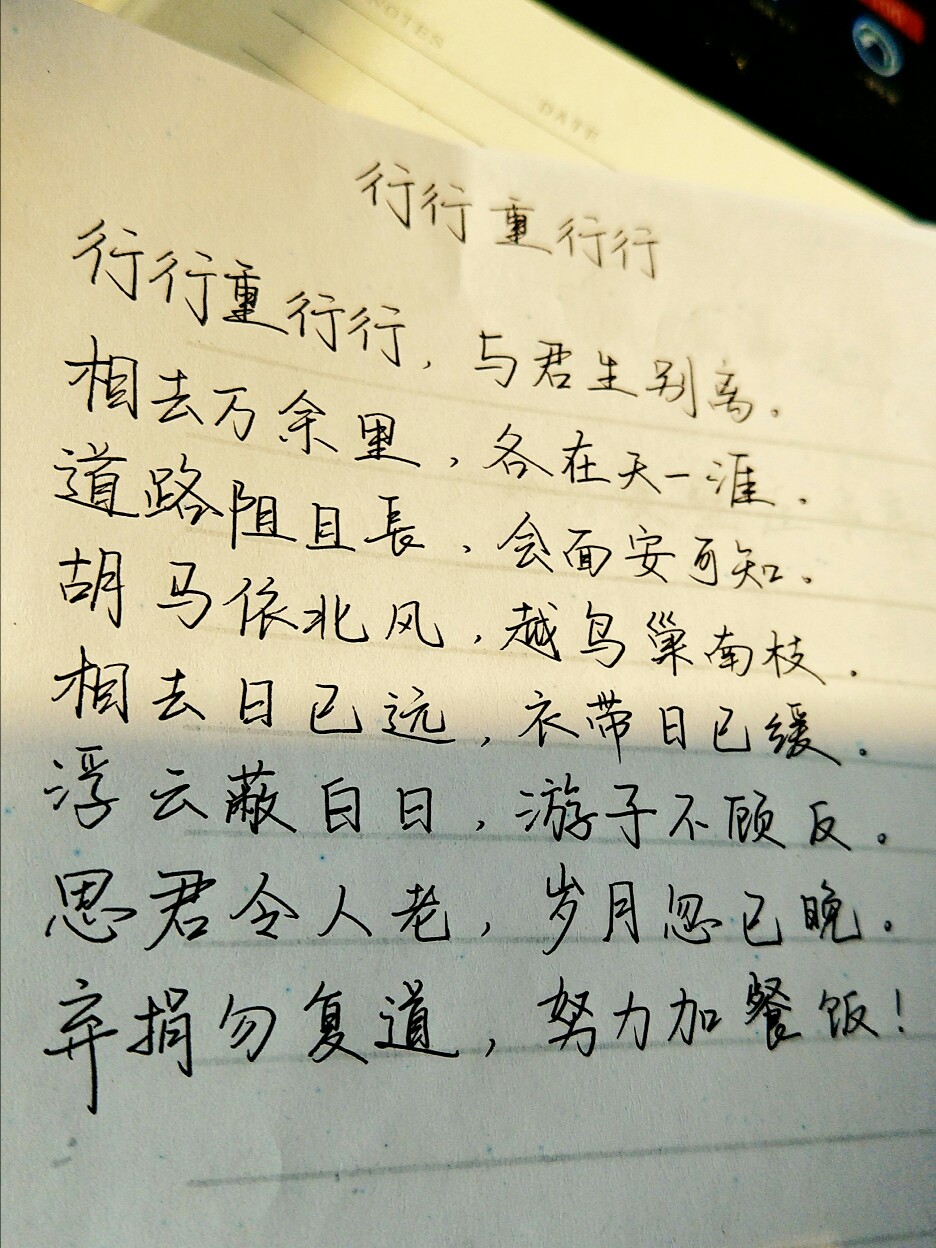 NOTES
DATE
行行重行行
行行重行行，与君生别离。
相去万余里，各在天一涯。
道路阻且長，会面安可知。
胡马依北风，越鸟巢南枝。
相去日已远，衣带日已缓。
浮云蔽白日，游子不顾反。
思君令人老，岁月忽已晚。
弃捐勿复道，努力加餐饭！